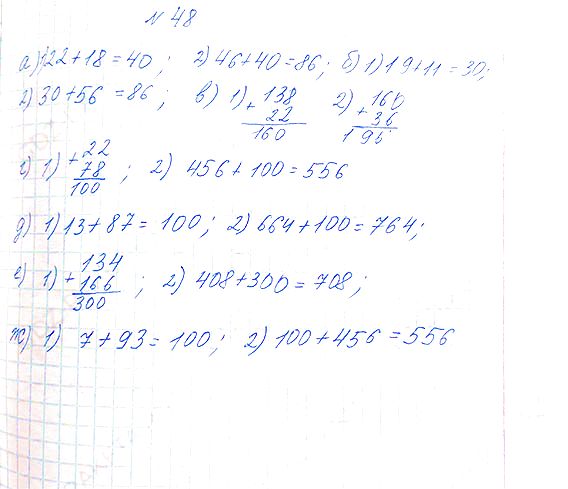 № 48
а) 1) 22+18=40; 2) 46+40=86; б) 1) 19+11=30;
2) 30+56=86; в) 1) + 138 2) + 160
22 36
160 196
г) 1) + 22
78 ; 2) 456+100=556
100
д) 1) 13+87=100; 2) 664+100=764;
е) 1) + 134
166 ; 2) 408+300=708;
300
ж) 1) 7+93=100; 2) 100+456=556